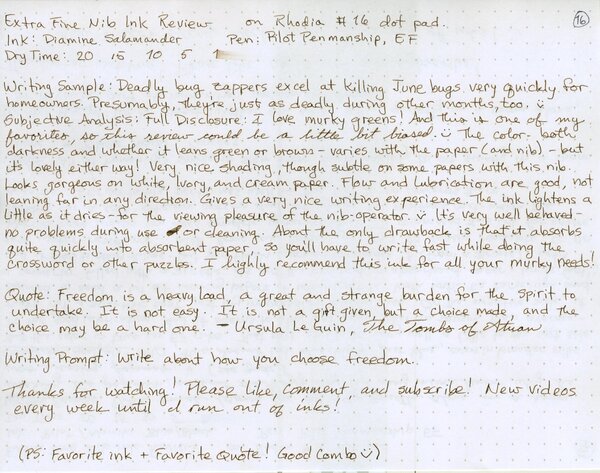 Extra Fine Nib Ink Review on Rhodia #16 dot pad. 16
Ink: Diamine Salamander Pen: Pilot Penmanship, EF
Dry Time: 20 15 10 5 1
Writing Sample: Deadly bug zappers excel at killing June bugs very quickly for
homeowners. Presumably, they're just as deadly during other months, too. ü
Subjective Analysis: Full Disclosure: I love murky greens! And this is one of my
favorites, so this review could be a little bit biased. ü The color - both
darkness and whether it leans green or brown - varies with the paper (and nib) - but
it's lovely either way! Very nice shading, though subtle on some papers with this nib.
Looks gorgeous on white, Ivory, and cream paper. Flow and lubrication are good, not
leaning far in any direction. Gives a very nice writing experience. The ink lightens a
little as it dries - for the viewing pleasure of the nib-operator. ü It's very well behaved -
no problems during use or cleaning. About the only drawback is that it absorbs
quite quickly into absorbent paper, so you'll have to write fast while doing the
crossword or other puzzles. I highly recommend this ink for all your murky needs!
Quote: Freedom is a heavy load, a great and strange burden for the spirit to
undertake. It is not easy. It is not a gift given, but a choice made, and the
choice may be a hard one. - Ursula Le Guin, The Tombs of Atuan.
Writing Prompt: Write about how you choose freedom.
Thanks for watching! Please like, comment, and subscribe! New videos
every week until I run out of inks!
(PS: Favorite ink + Favorite Quote! Good Combo ü)